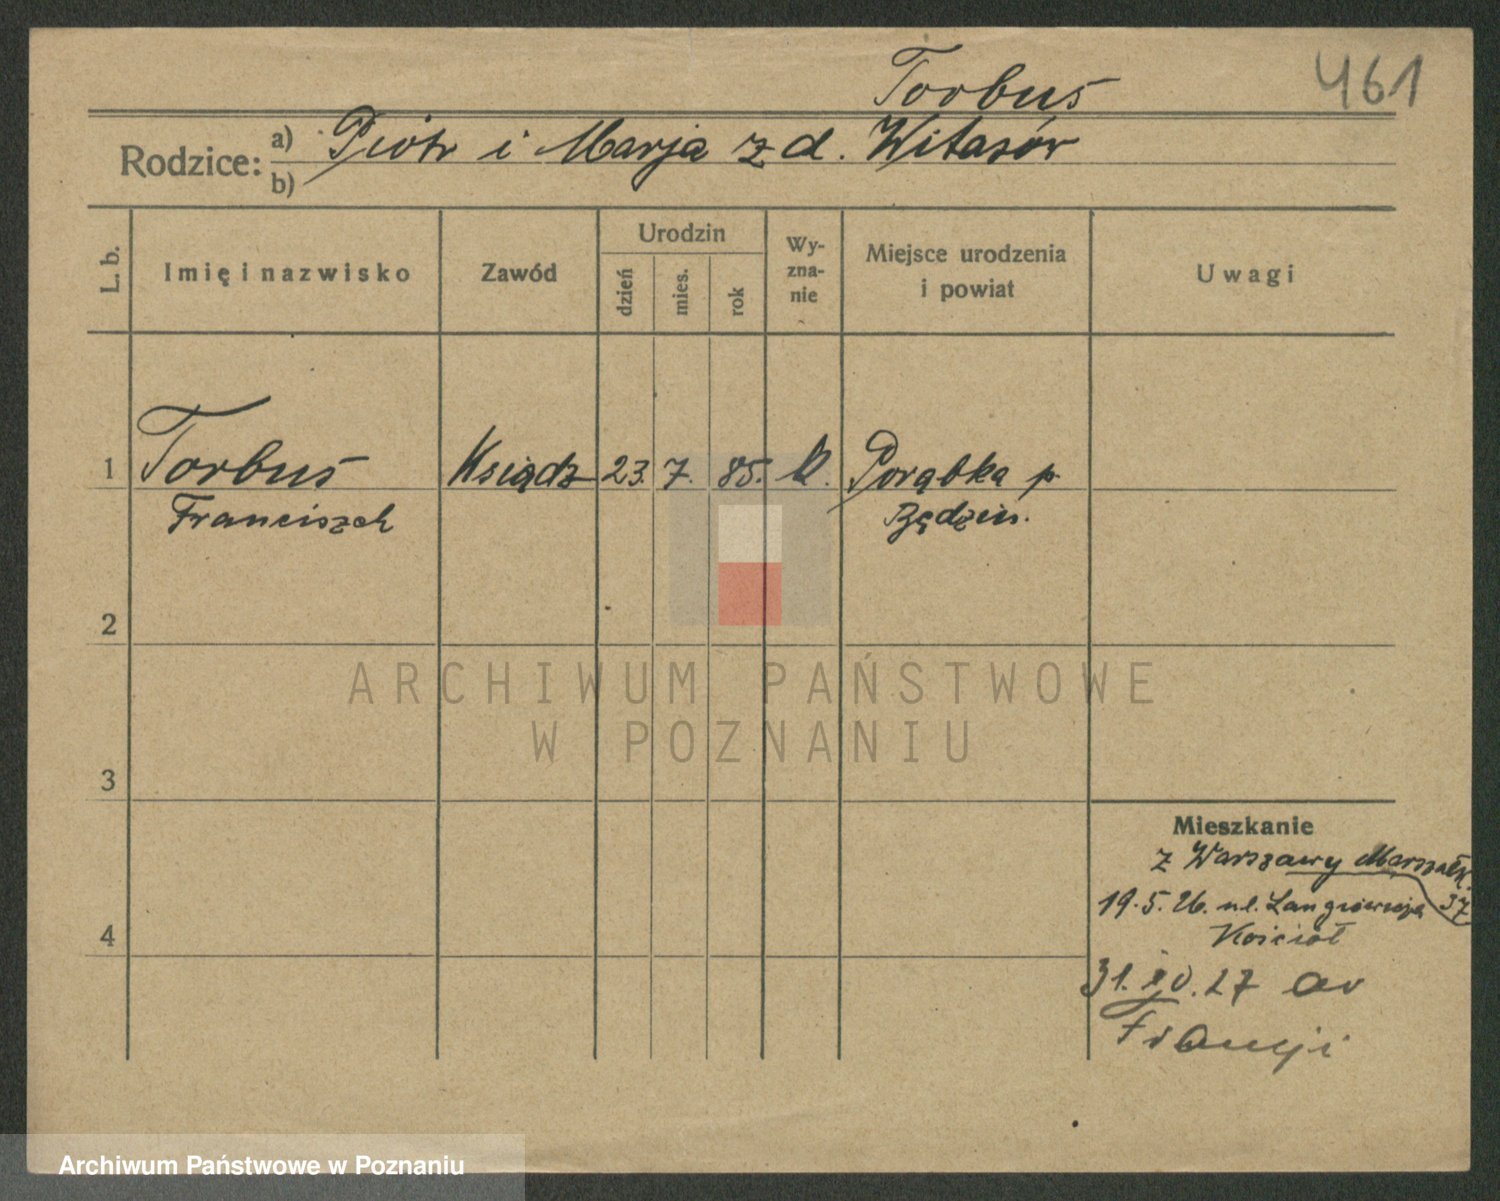 461
Torbus
Rodzice: a) Piotr i Marja z d. Witasór
b)
L. b.
Imię i nazwisko
Zawód
Urodzin
dzień
mies.
rok
Wy-
zna-
nie
Miejsce urodzenia
i powiat
Uwagi
1 Torbus Ksiądz 23. 7. 85. k. Porąbka p.
Franciszek Będzin.
2
ARCHIWUM PAŃSTWOWE
W POZNANIU
3
Mieszkanie
z Warszawy Marszałk.
37
19.5.26. ul.
Kościoł
4
31.10.27 do
Francji
Archiwum Państwowe w Poznaniu